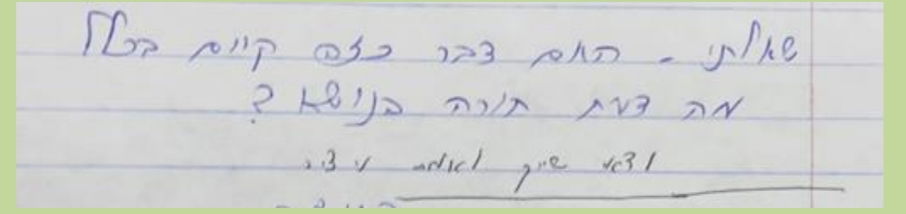 שאלתי - האם דבר כזה קיים בכלל
מה דעת תורה בנושא?
ודאי שייך